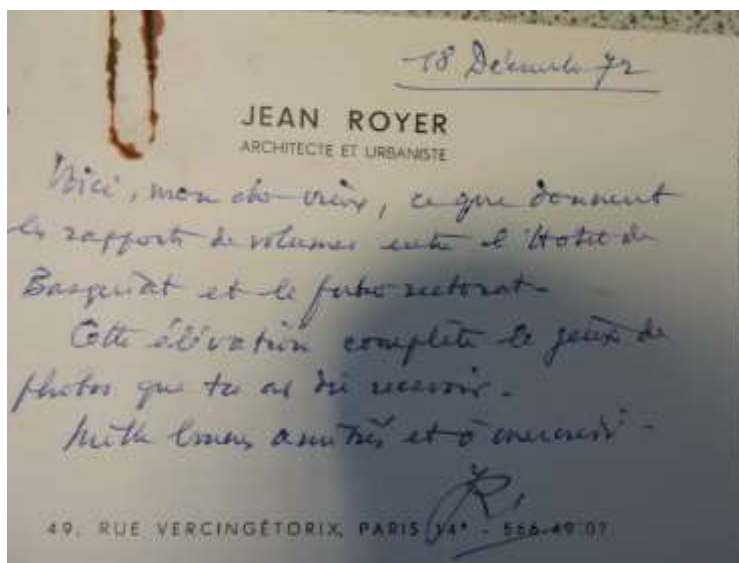 18 Décembre 72
JEAN ROYER
ARCHITECTE ET URBANISTE
Voici, mon cher vieux, ce que donnent
les rapports de volumes entre l'Hotel de
Basquiat et le futur rectorat.
Cette élévation complète le jeux de
photos que tu as dû recevoir.
Mille bonnes amitiés et à mercredi -
JR.
49, RUE VERCINGÉTORIX, PARIS 14e - 566-49.07